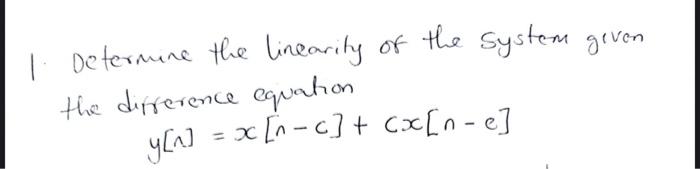 1. Determine the linearity of the system given
the difference equation
y[n] = x[n-c] + cx[n-e]